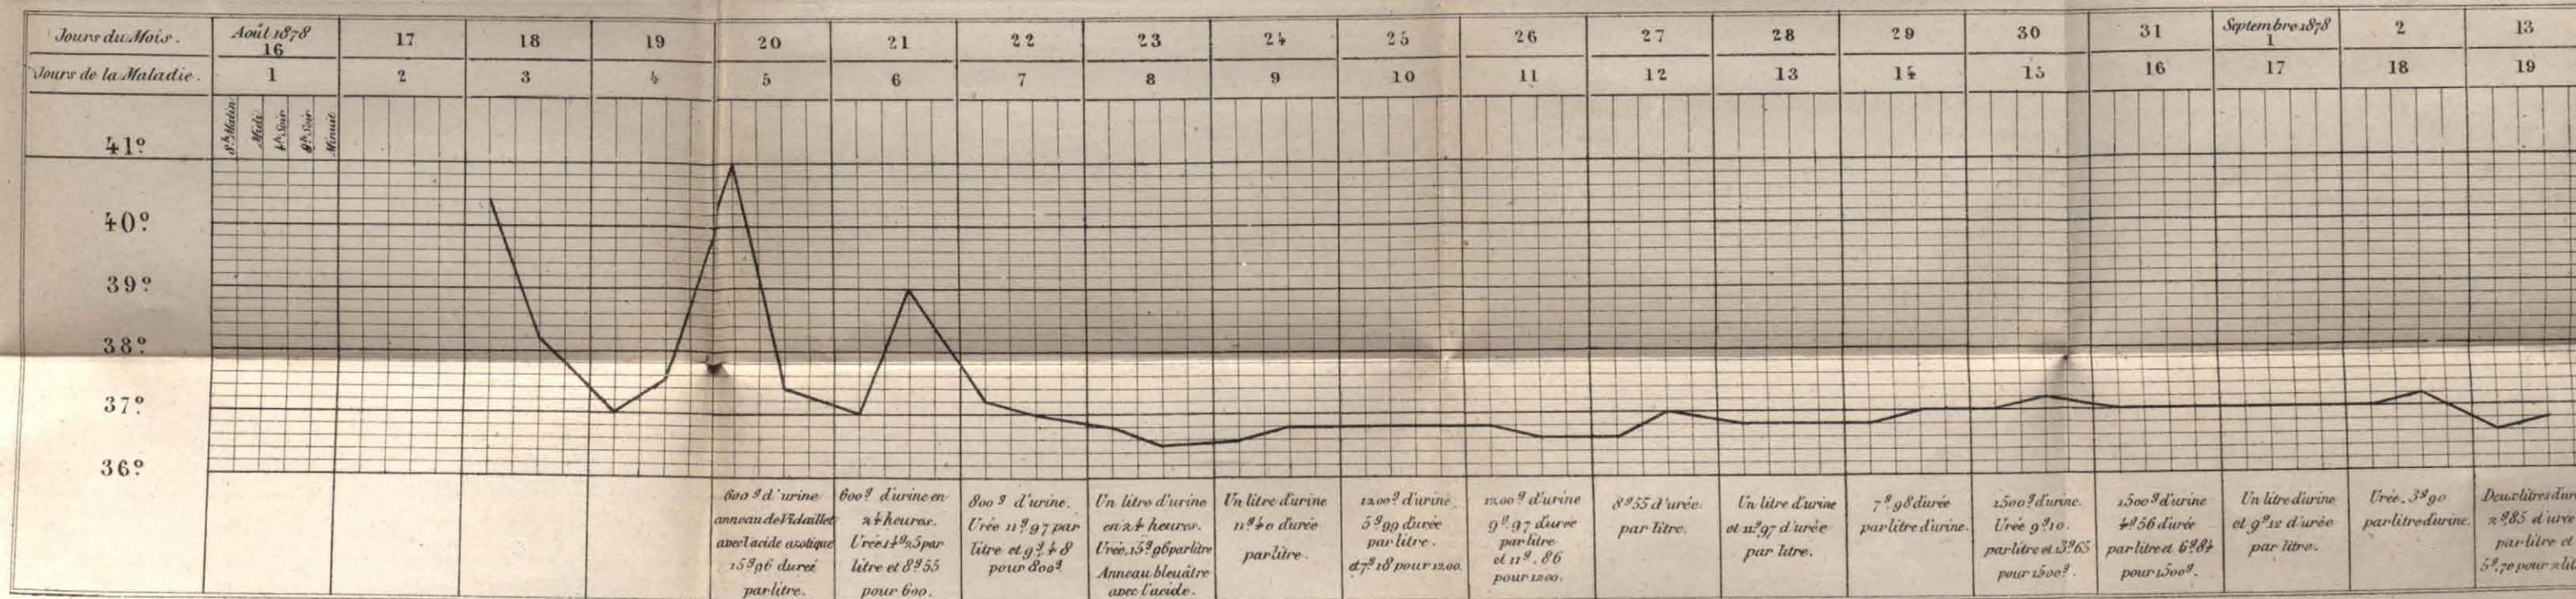 Jours du Mois. Août 1878 16 17 18 19 20 21 22 23 24 25 26 27 28 29 30 31 Septembre 1878 1 2 13
Jours de la Maladie. 1 2 3 4 5 6 7 8 9 10 11 12 13 14 15 16 17 18 19
8h Matin Midi 4h Soir 8h Soir Minuit
41º
40º
39º
38º
37º
36º
600g d'urine
anneau de Vidaillet
avec l'acide azotique
15g96 durée
par litre.
600g d'urine en
24 heures.
Urée 14g25 par
litre et 8g55
pour 600.
800g d'urine.
Urée 11g,97 par
litre et 9g,48
pour 800g
Un litre d'urine
en 24 heures.
Urée, 15g,96 par litre
Anneau bleuâtre
avec l'acide.
Un litre d'urine
11g40 durée
par litre.
1200g d'urine
5g99 durée
par litre.
et 7g18 pour 1200.
1200g d'urine
9g.97 durée
par litre
et 11g.86
pour 1200.
8g55 d'urée
par litre.
Un litre d'urine
et 11g97 d'urée
par litre.
7g.98 durée
par litre d'urine.
1500g d'urine.
Urée 9g10.
par litre et 13g65
pour 1500g.
1500g d'urine
4g56 durée
par litre et 6g84
pour 1500g.
Un litre d'urine
et 9g12 d'urée
par litre.
Urée. 3g90
par litre d'urine.
Deux litres d'ur
2g85 d'urée
par litre et
5g,70 pour 2 lit